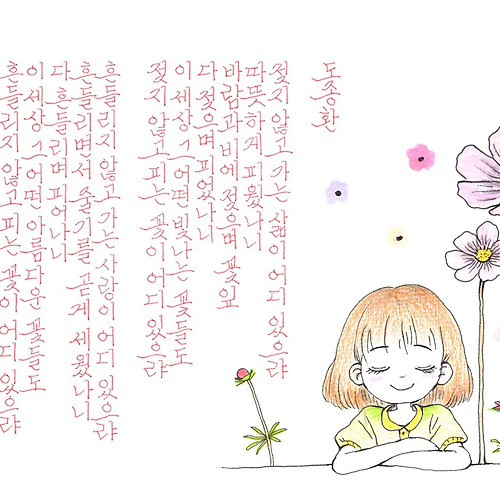 흔들리지 않고 피는 꽃이 어디 있으랴
이 세상 그 어떤 아름다운 꽃들도
다 흔들리며 피어나니
흔들리면서 줄기를 곧게 세웠나니
흔들리지 않고 가는 사랑이 어디 있으랴
젖지 않고 피는 꽃이 어디 있으랴
이 세상 그 어떤 빛나는 꽃들도
다 젖으며 피었나니
바람과 비에 젖으며 꽃잎
따뜻하게 피웠나니
젖지 않고 가는 삶이 어디 있으랴
도종환